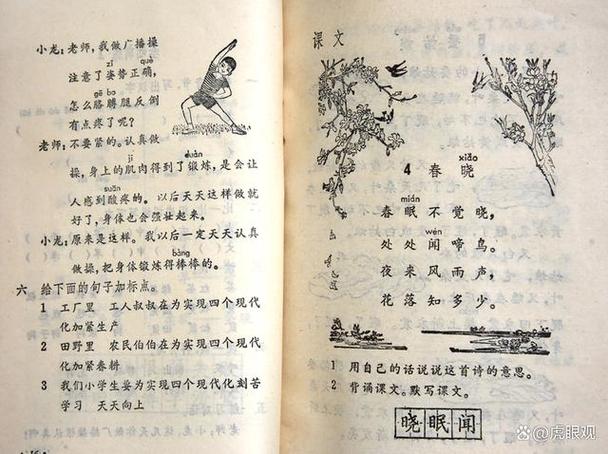 小龙：老师，我做广播操
zī què
注意了姿势正确，
gē bo
怎么胳膊腿反倒
有点疼了呢？
老师：不要紧的。认真做
jī duàn
操，身上的肌肉得到了锻炼，是会让
suān
人感到酸疼的。以后天天这样做就
好了，身体也会强壮起来。
小龙：原来是这样。我以后一定天天认真
bàng
做操，把身体锻炼得棒棒的。
六 给下面的句子加标点。
1 工厂里 工人叔叔在为实现四个现代
化加紧生产
2 田野里 农民伯伯在为实现四个现代
化加紧春耕
3 我们小学生要为实现四个现代化刻苦
学习 天天向上
课文
xiǎo
4 春晓
mián
春眠不觉晓，
wén
处处闻啼鸟。
夜来风雨声，
花落知多少。
1 用自己的话说说这首诗的意思。
2 背诵课文。默写课文。
晓眠闻
@虎眼观